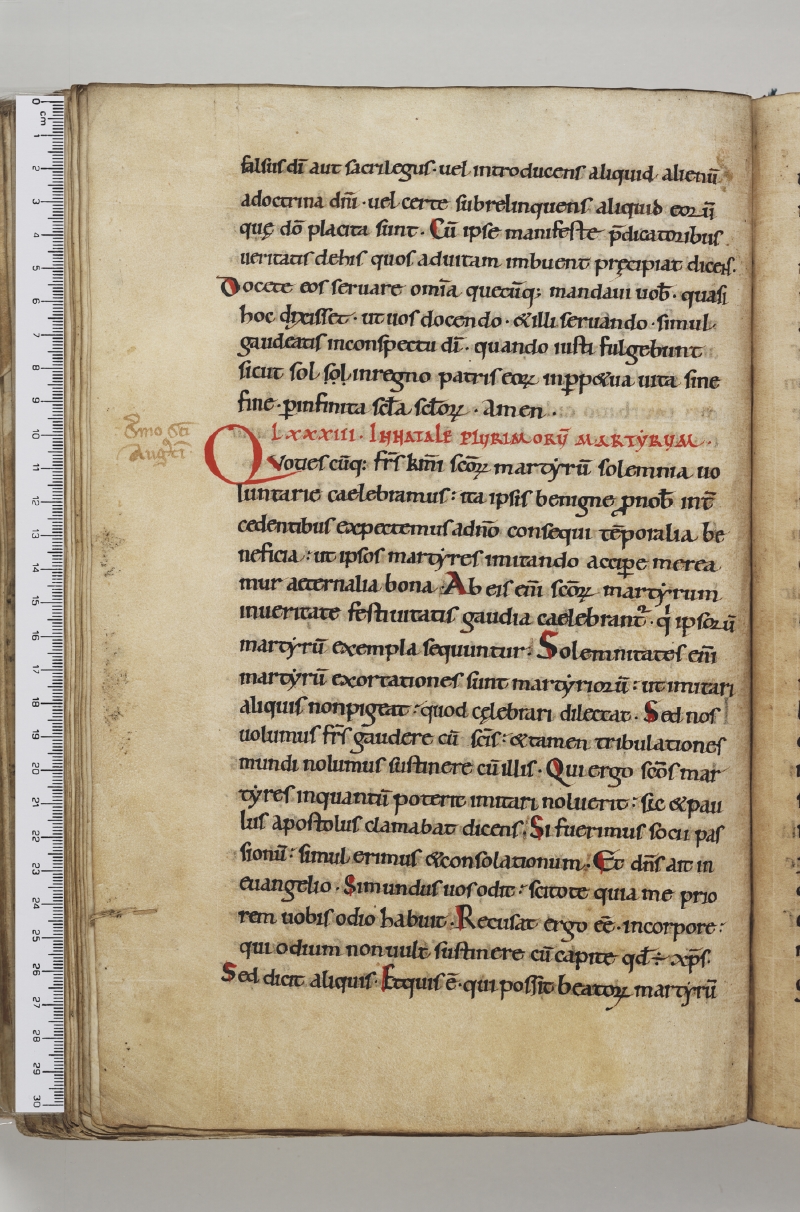 falsus dī aut sacrilegus · uel introducens aliquid alienū
adoctrina dn̄i · uel certe subrelinquens aliquid eoꝝ ū
quę dō placita sunt · Cū ipse manifeste p̄dicatoribus
ueritatis dehis quos aduitam imbuent pręcipiat dicens.
Docete eos seruare om̄ia quecūq; mandaui uob̄ · quasi
hoc dixisset · ut uos docendo · & illi seruando · simul
gaudeatis inconspectu dī · quando iusti fulgebunt
sicut sol sol inregno patris eoꝝ inꝑp&ua uita sine
fine · ꝑinfinita sc̄la sc̄loꝝ · Amen ·
LXXXIII · IN NATALE PLURIMORŪ MARTYRUM ·
Quotiescūq; fr̄s km̄i sc̄oꝝ martyrū solemnia uo
luntarie caelebramus : ita ipsis benigne ꝓnob̄ int̄
cedentibus expectemus adn̄o consequi tēporalia be
neficia : ut ipsos martyres imitando accipe merea
mur aeternalia bona · Ab eis eni̅ sc̄oꝝ martyrum
inueritate festiuitatis gaudia caelebrant᷑ · qi ipsorū
martyrū exempla sequuntur · Solemnitates eni̅
martyrū exortationes sunt martyriorū : ut imitari
aliquis nonpigeat : quod cęlebrari dilectat · Sed nos
uolumus fr̄s gaudere cū sc̄is : & tamen tribulationes
mundi nolumus sustinere cū illis · Qui ergo sc̄os mar
tyres inquantū poterit imitari noluerit : sic & pau
lus apostolus clamabat dicens · Si fuerimus socii pas
sionū : simul erimus & consolationum · Et dn̄s ait in
euangelio · Si mundus uos odit : scitote quia me prio
rem uobis odio habuit · Recusat ergo eē · incorpore :
qui odium non uult sustinere cū capite qd̄ ÷ xp̄s.
Sed dicit aliquis · Et quis ē · qui possit beatoꝝ martyrū
Aug᷑ti
0 cm
1
2
3
4
5
6
7
8
9
10
11
12
13
14
15
16
17
18
19
20
21
22
23
24
25
26
27
28
29
30